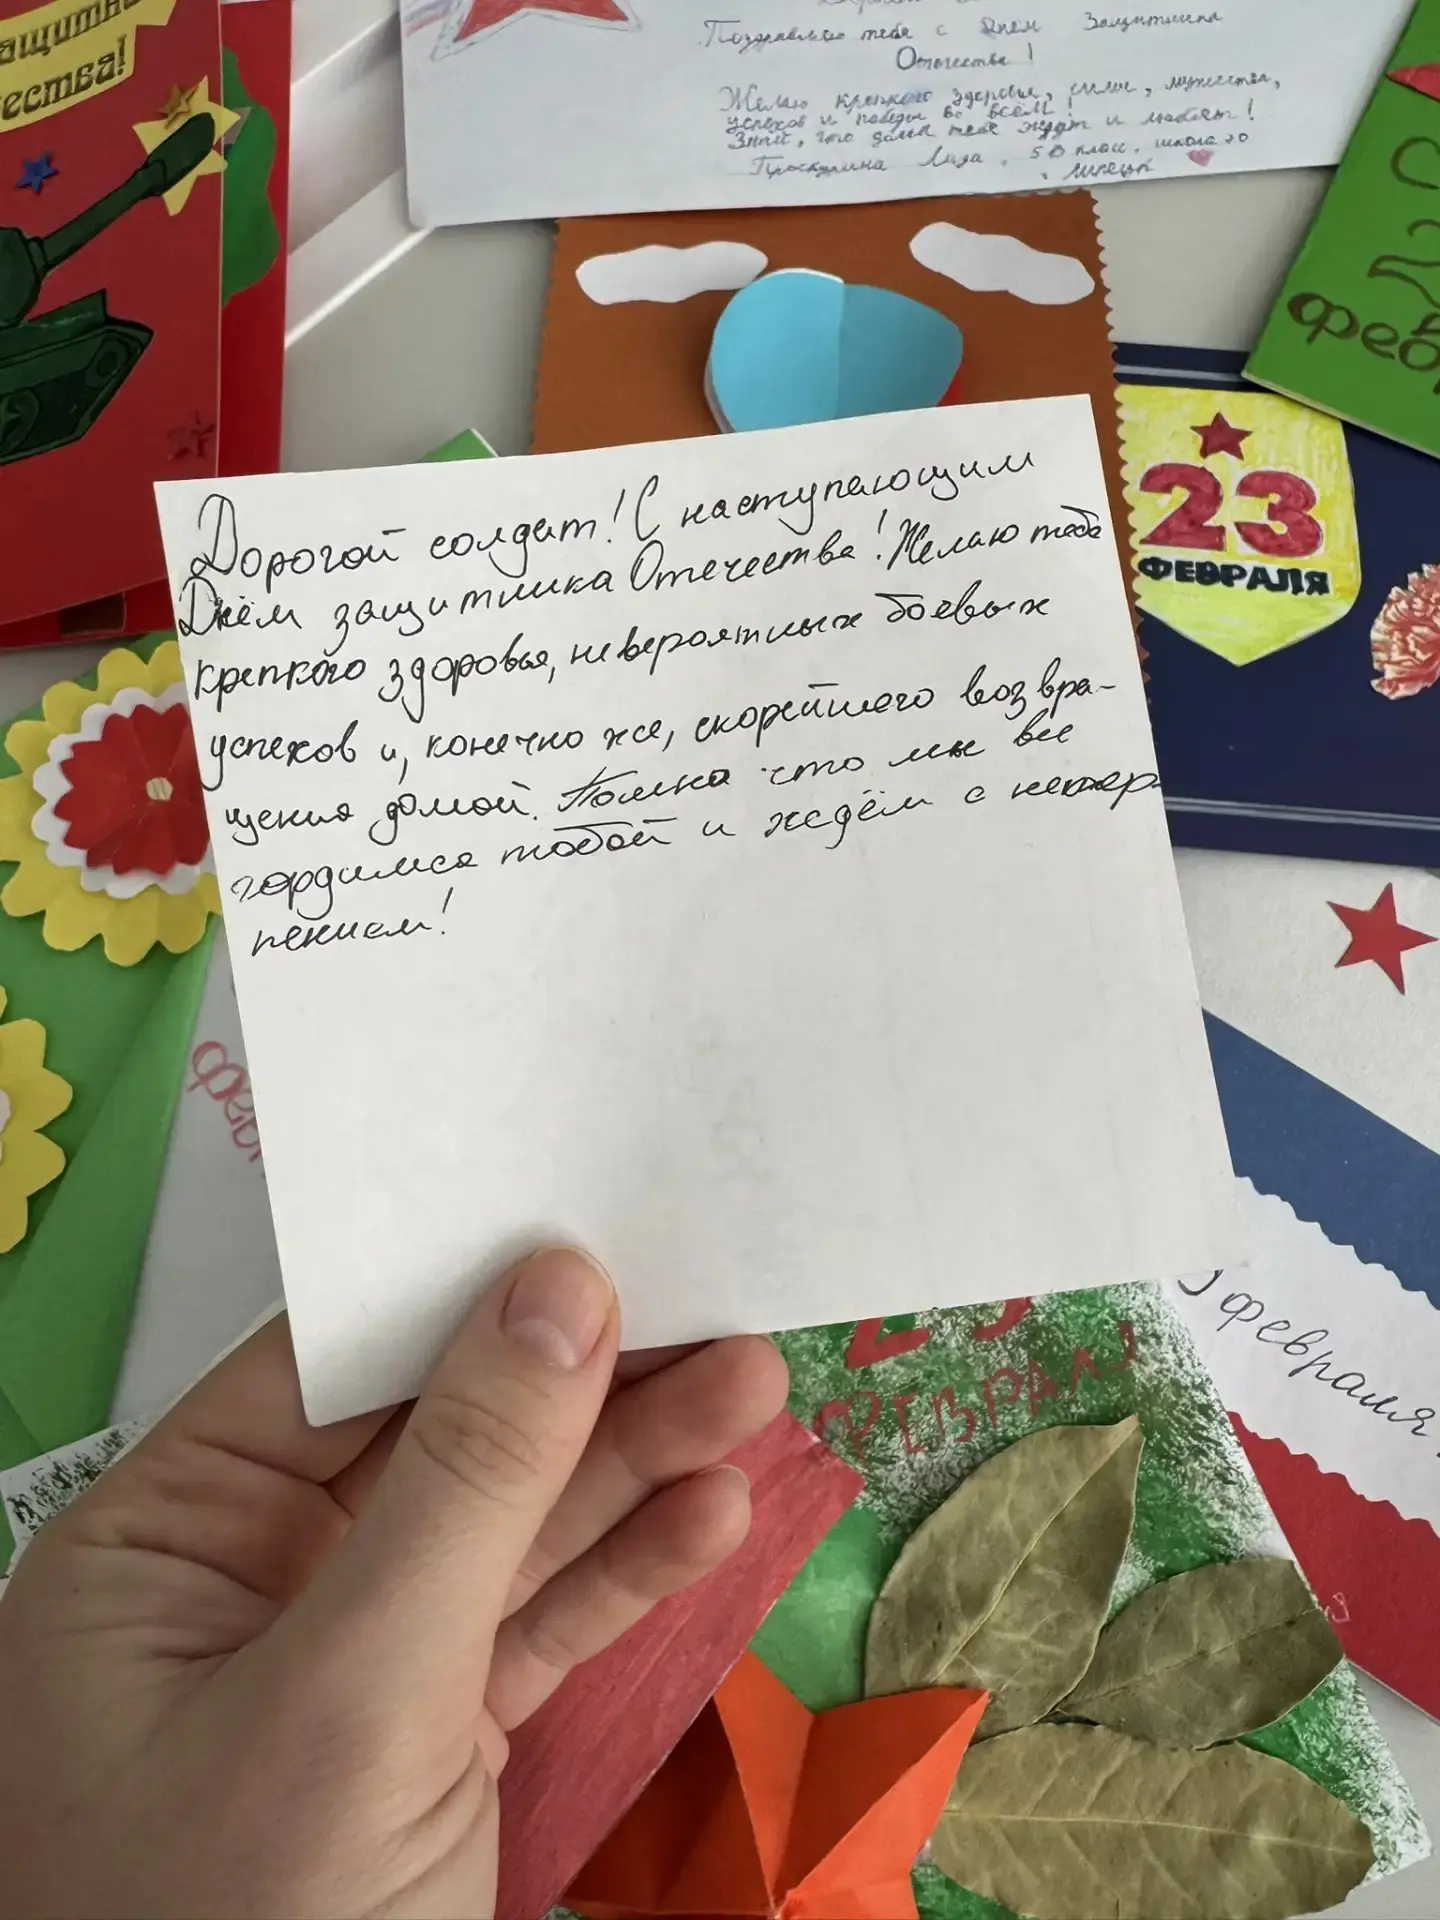 ащитни
ества!
Поздравляю тебя с Днём Защитника
Отечества!
Желаю крепкого здоровья, силы, мужества,
успехов и победы во всём!
Знай, что дома тебя ждут и любят!
Лиза, 5 класс, школа 20
Липецк
С
2
Фев
23
ФЕВРАЛЯ
Дорогой солдат! С наступающим
Днём защитника Отечества! Желаю тебе
крепкого здоровья, невероятных боевых
успехов и, конечно же, скорейшего возвра-
щения домой. Помни что мы все
гордимся тобой и ждём с нетер-
пением!
фев
23
ФЕВРАЛЯ
февраля